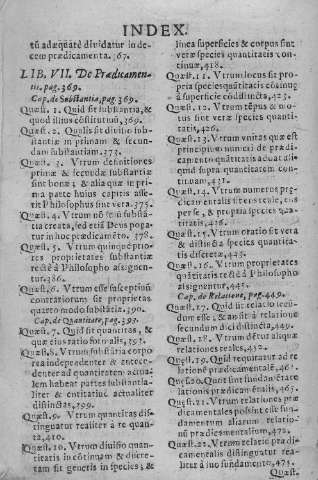 INDEX.
tũ adæquatè diuidatur in decem
cem prædicamenta. 367.
LIB. VII. De Prædicamentis,
pag. 369.
Cap. de Substantia, pag. 369.
Quæst. 1. Quid sit substantia, &
quod illius cõstitutum, 369.
Quæst. 2. Qualis sit diuisio substantiæ
in primam & secundam
substantiam. 377.
Quæst. 3. Vtrum definitiones
primæ & secundæ substantiæ
sint bonæ; & alia quæ in prima
parte huius capitis asserit
Philosophus sint vera. 375.
Quæst. 4. Vtrum nõ solũ substãtia
creata, sed etiã Deus ponatur
in hoc prædicamẽto. 378.
Quæst. 5. Vtrum quinque priores
proprietates substantiæ
rectè à Philosopho assignentur,
386.
Quæst. 6. Vtrum esse susceptiuũ
contrariorum sit proprietas
quarto modo substãtiæ. 390.
Cap. de Quantitate, pag. 391.
Quæst. 7. Quid sit quantitas, &
quæ eius ratio formalis, 391.
Quæst. 8. Vtrum substãtia corporea
independenter & antecedenter
ad quantitatem actualem
habeat partes substantialiter
& entitatiuè actualiter
distinctas, 399.
Quæst. 9. Vtrum quantitas distinguatur
realiter à re quanta,
410.
Quæst. 10. Vtrum diuisio quantitatis
in cõtinuam & discretam
sit generis in species; &
linea superficies & corpus sint
veræ species quantitatis continuæ,
418.
Quæst. 11. Vtrum locus sit propria
species quãtitatis cõtinuæ
à superficie cõdistincta, 423.
Quæst. 12. Vtrum tẽpus & motus
sint veræ species quantitatis,
426.
Quæst. 13. Vtrum vnitas quæ est
principium numeri de prædicamento
quãtitatis aduat aliquid
supra quantitatem continuam,
431.
Quæst. 14. Vtrum numerus prædicamentalis
sit ens reale, ens
per se, & propria species quantitatis,
436.
Quæst. 15. Vtrum oratio sit vera
& distincta species quantitatis
discretæ, 443.
Quæst. 16. Vtrum proprietates
quantitatis rectè à Philosopho
assignentur, 445.
Cap. de Relatione, pag. 449.
Quæst. 17. Quid sit relatio secundum
esse; & an sit à relatione
secundum dici distincta, 449.
Quæst. 18. Vtrum dẽtur aliquæ
relationes reales, 452.
Quæst. 19. Quid requiratur ad relationẽ
prædicamentalẽ, 461.
Quæst. 20. Quot sint fundamenta
relationis prædicamẽtalis, 463.
Quæst. 21. Vtrum relationes prædicamentales
possint esse fundamentum
aliarum relationũ
prædicamentalium, 473.
Quæst. 22. Vtrum relatio prædicamentalis
distinguatur realiter
à suo fundamento, 475.
Quæst.